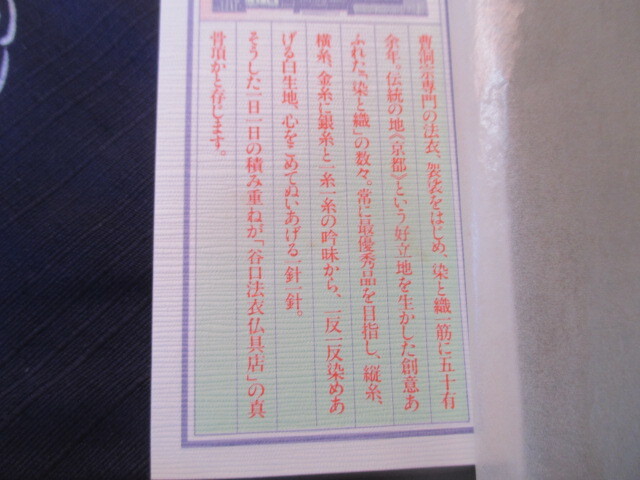 曹洞宗専門の法衣、袈裟をはじめ、染と織一筋に五十有
余年。伝統の地《京都》という好立地を生かした創意あ
ふれた「染と織」の数々。常に最優秀品を目指し、縦糸、
横糸、金糸に銀糸と一糸一糸の吟味から、一反一反染めあ
げる白生地、心をこめてぬいあげる一針一針。
そうした一日一日の積み重ねが「谷口法衣仏具店」の真
骨頂かと存じます。